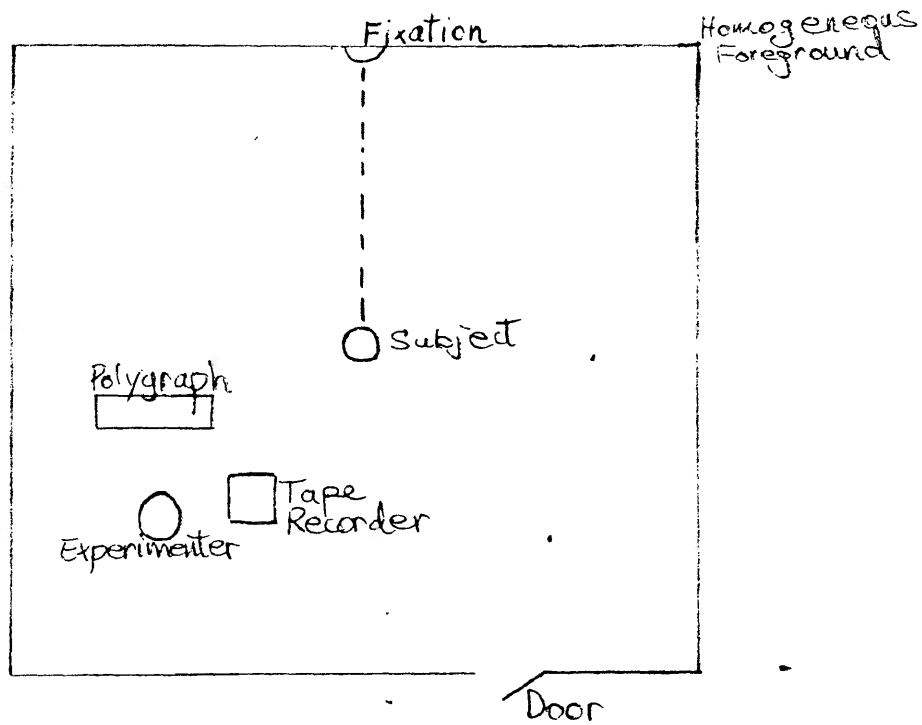 Fixation
Homogeneous
Foreground
Subject
Polygraph
Tape
Recorder
Experimenter
Door